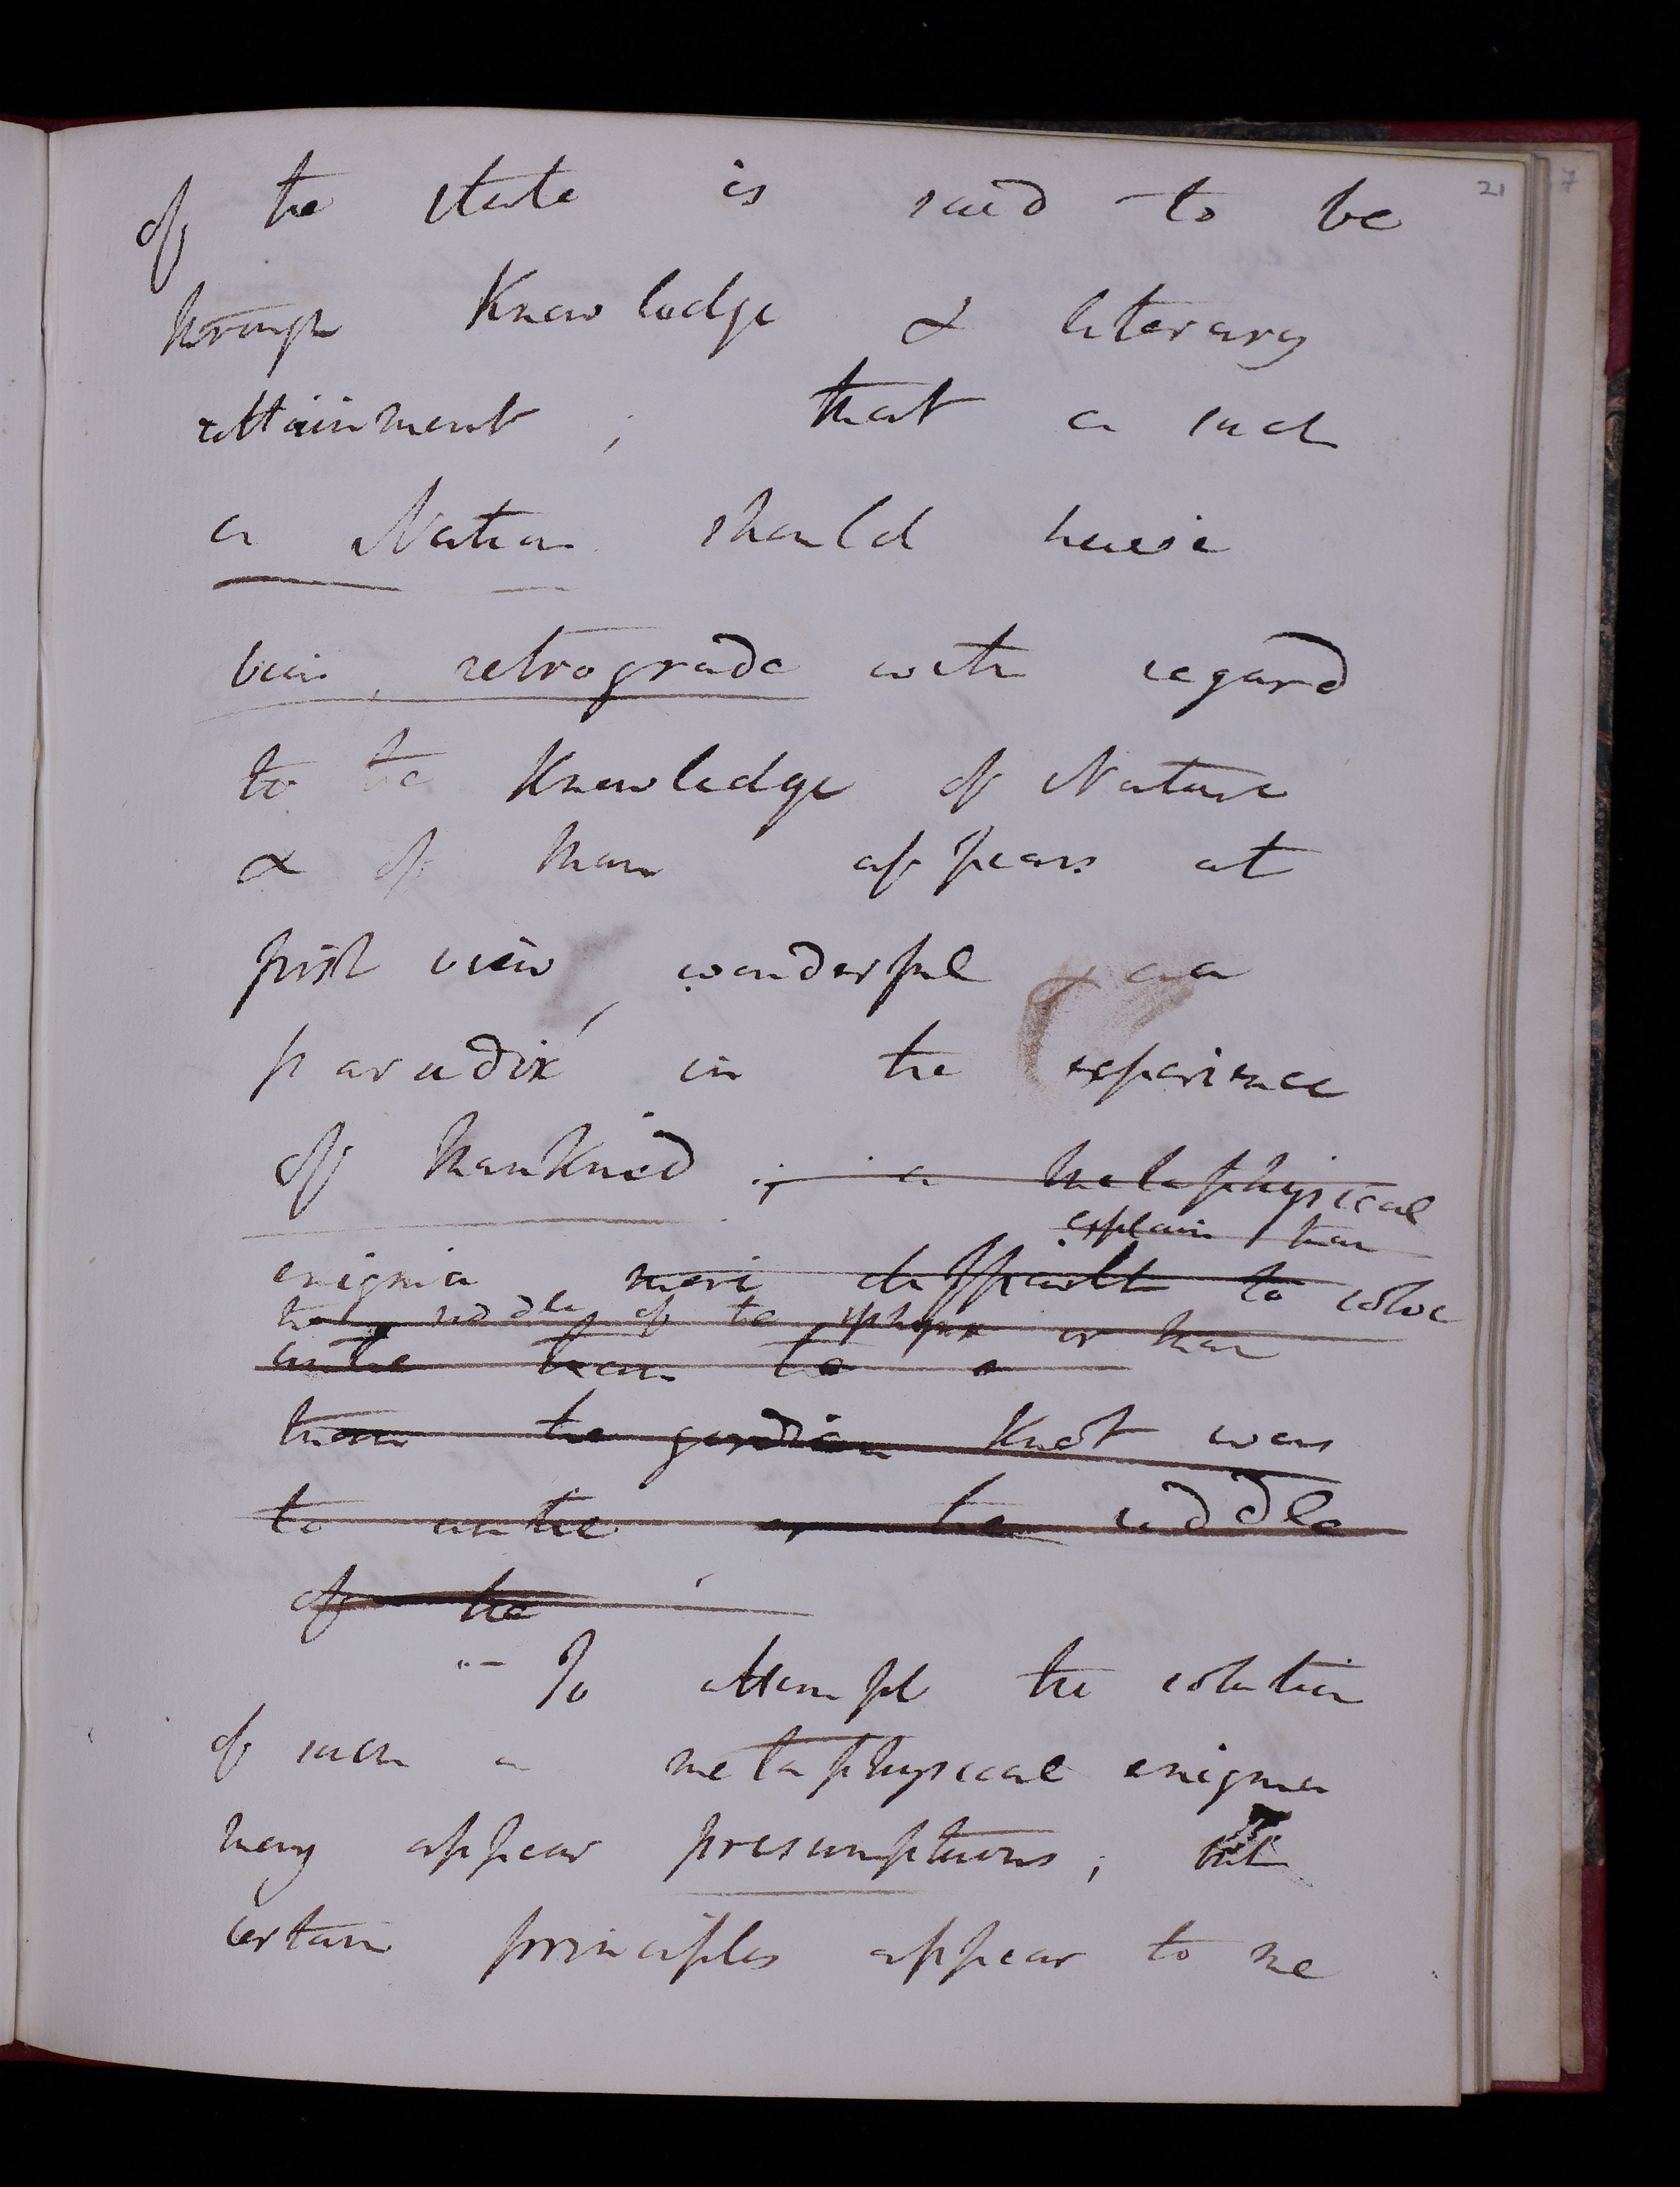 21 7
of the state is said to be
through Knowledge & literary
attainment ; that a such
a Nation should have
been, retrograde with regard
to the Knowledge of Nature
& of Man appears at
first view, wonderful & a
paradox in the experience
of Mankind ; a metaphysical
explain than
enigma more difficult to solve
the riddle of the sphynx or than
untie than to a
than the gordian Knot was
to untie or the riddle
of the
To attempt the solution
of such a metaphysical enigma
may appear presumptuous ; but
certain principles appear to me